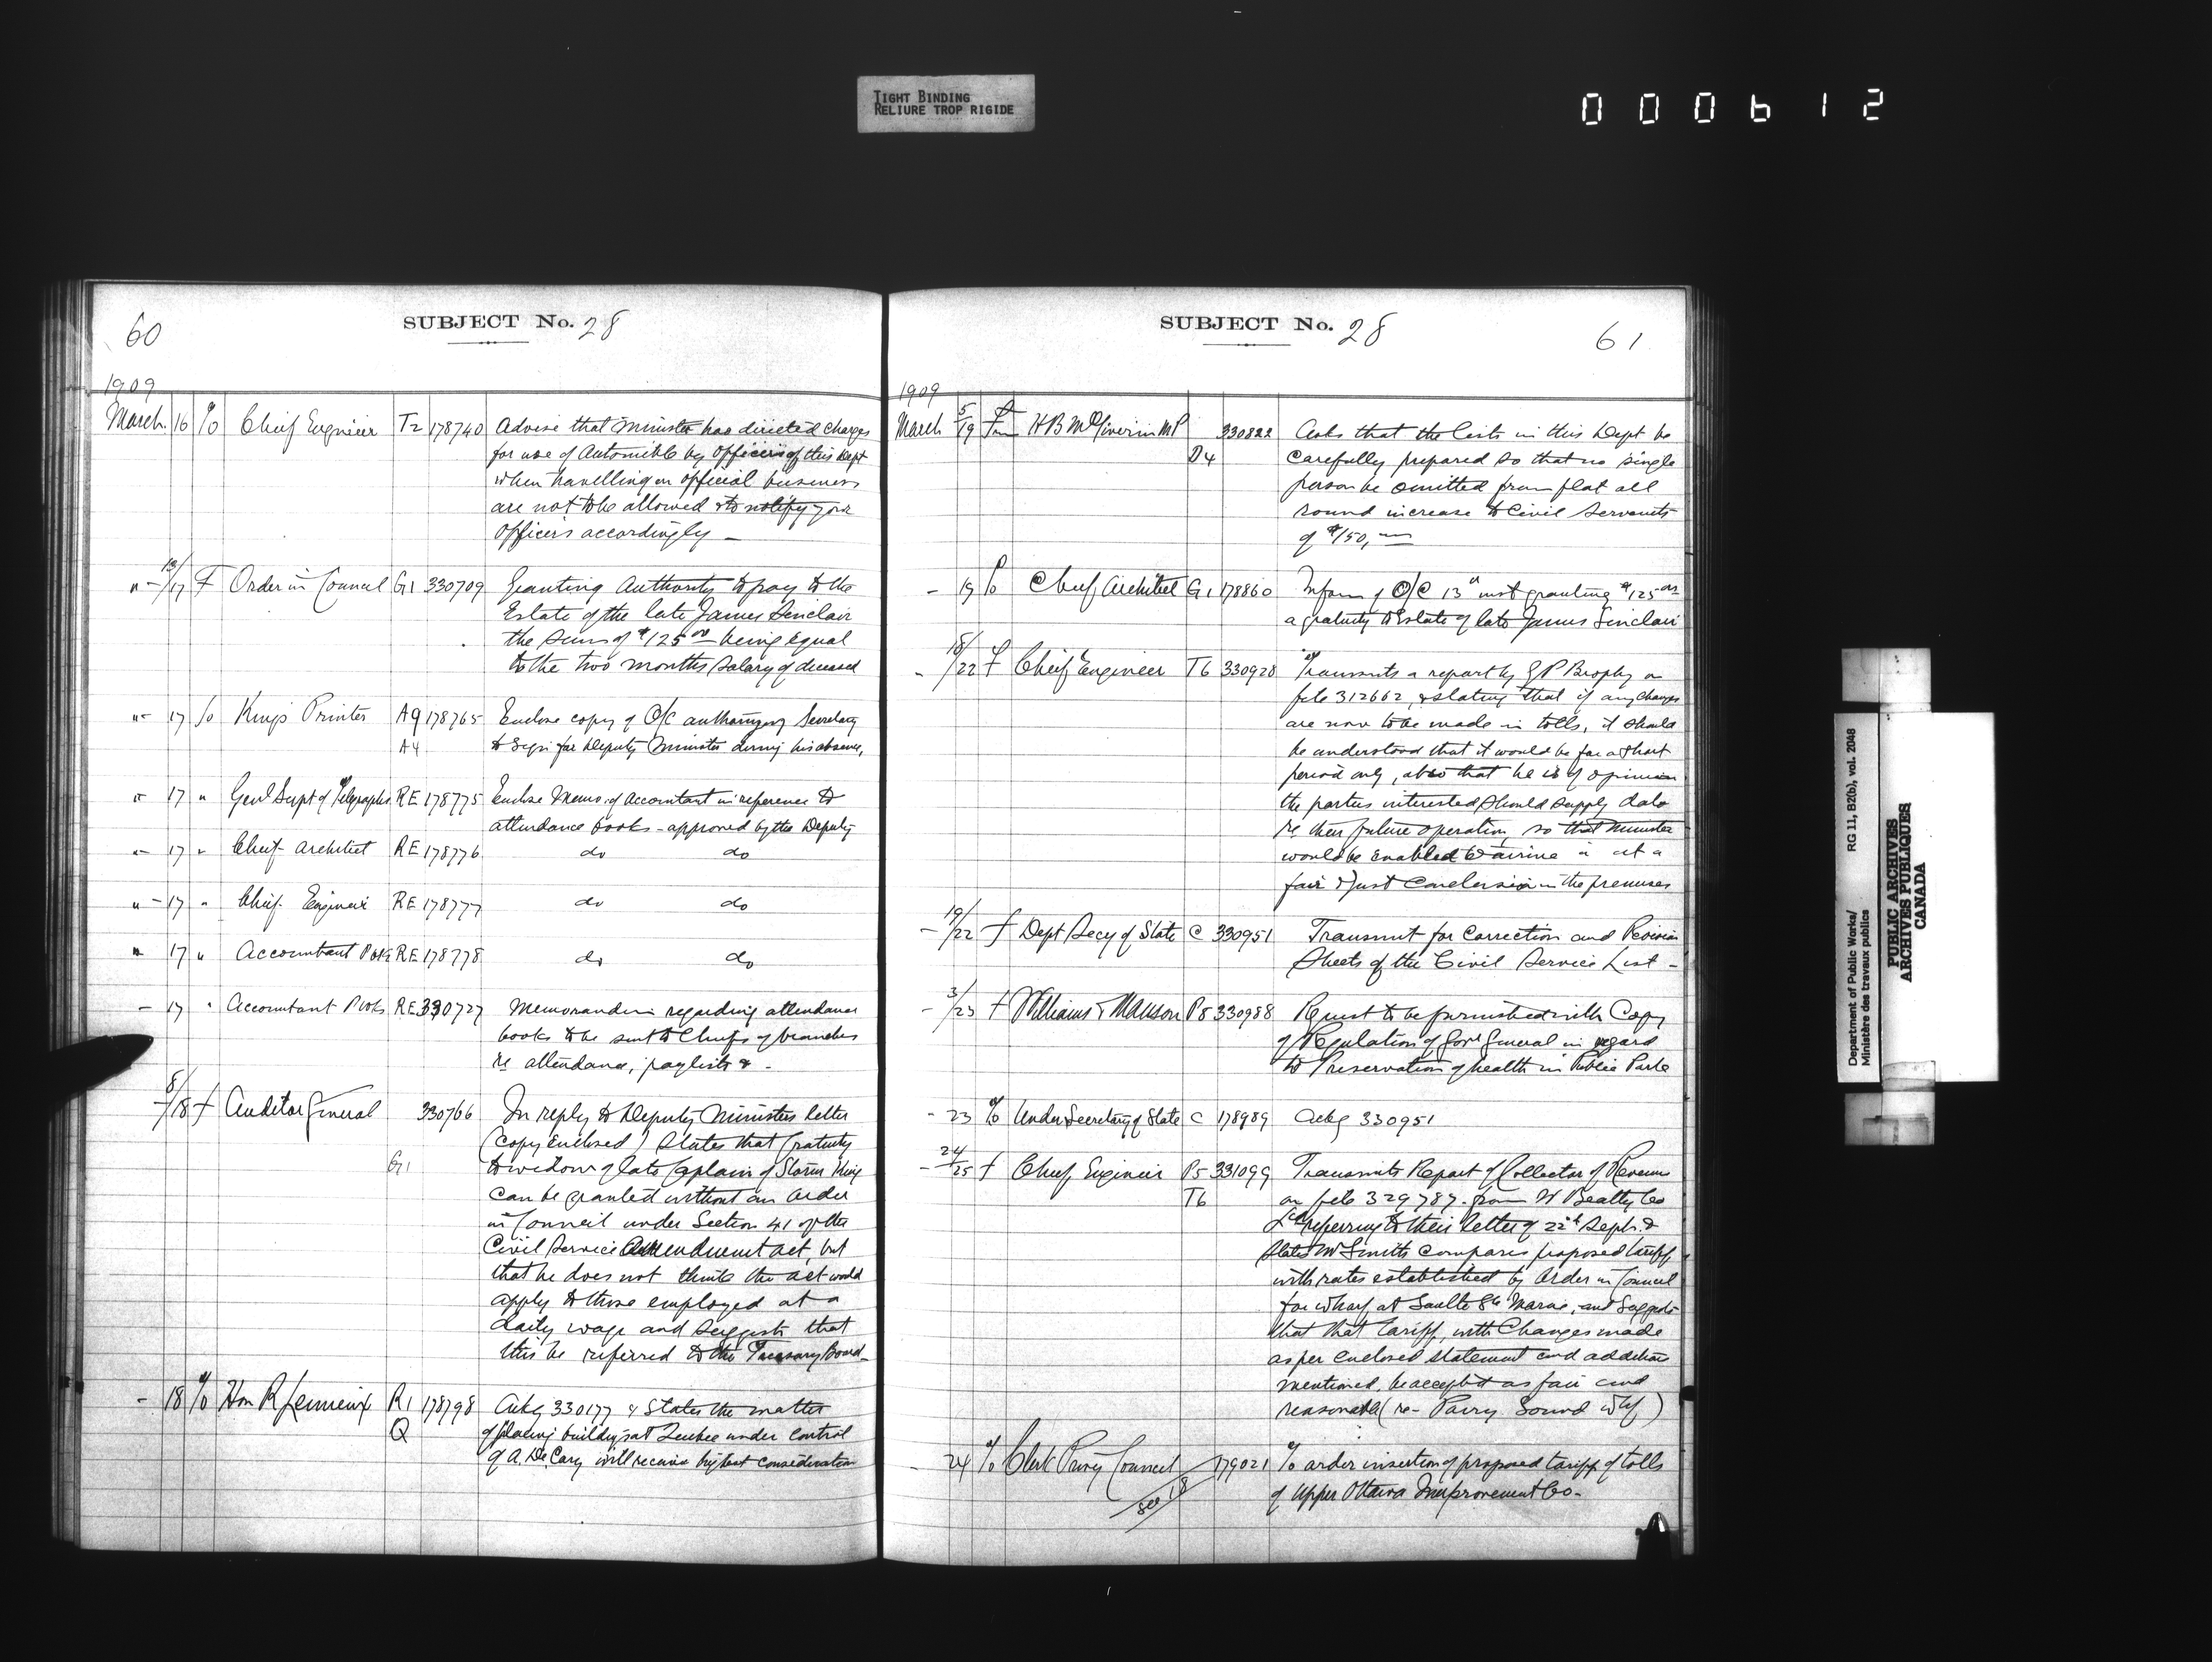 TIGHT BINDING
RELIURE TROP RIGIDE
000612
60
SUBJECT No. 28
1909
March 16 %o Chief Engineer T2 178740 Advise that Minister has directed charges
for use of Automobile by Officers of this Dept
when travelling on official business
are not to be allowed & to notify your
Officers accordingly —
" - 13/17 F Order in Council G1 330709 Granting Authority to pay to the
Estate of the late James Sinclair
the sum of $125 00 being equal
to the two months salary of deceased
" - 17 %o King's Printer A9 178765 Enclose copy of O/C authorizing Secretary
A4 to sign for Deputy Minister during his absence,
" 17 " Genl Supt of Telegraphs RE 178775 Enclose Memo. of Accountant in reference to
attendance books - approved by the Deputy
" - 17 " Chief Architect RE 178776 do do
" - 17 " Chief Engineer RE 178777 do do
" 17 " Accountant RE 178778 do do
- 17 " Accountant RE 330727 Memorandum regarding attendance
books to be sent to Chiefs of branches
re attendance, paylists &
- 8/18 f Auditor General 330766 In reply to Deputy Ministers letter
(copy enclosed) states that Gratuity
G1 to widow of late Captain of Storm King
can be granted without an Order
in Council under Section 41 of the
Civil Service Amendment Act, but
that he does not think the act would
apply to those employed at a
daily wage and suggests that
this be referred to the Treasury Board -
- 18 %o Hon R Lemieux R1 178798 Ackg 330177 & States the matter
Q of placing buildings at Quebec under control
of A. De Cary will receive highest consideration
SUBJECT No. 28
61
1909
March 5/19 H B McGiverin MP 330822 Asks that the lists in this Dept be
D4 carefully prepared so that no single
person be omitted from flat all
round increase to Civil Servants
of $150,
- 19 %o Chief Architect G1 178860 Inform of O/C 13" inst granting $125 as
a gratuity to Estate of late James Sinclair
- 18/22 f Chief Engineer T6 330928 Transmits a report by G P Brophy on
file 312662, & stating that if any changes
are now to be made in tolls, it should
be understood that it would be for a short
period only, also that he is of opinion
the parties interested should supply data
re their future operation so that Minister
would be enabled to arrive at a
fair & just conclusion in the premises
- 19/22 f Dept Secy of State C 330951 Transmit for Correction and Revision
Sheets of the Civil Service List -
- 3/23 f Williams & Manson P8 330988 Request to be furnished with Copy
of Regulation of Govr General in regard
to Preservation of health in Public Parks
- 23 %o Under Secretary of State C 178989 Ackg 330951
- 24/25 f Chief Engineer P5 331099 Transmits Report of Collector of Revenue
T6 on file 329787 from W Beatty Co
Ltd referring to their letter of 22d Sept. &
states Mr Smith compares proposed tariff
with rates established by Order in Council
for wharf at Saulte Ste Marie, and suggests
that that tariff, with Changes made
as per enclosed statement and additions
mentioned, be accepted as fair and
reasonable (re - Parry Sound Whf)
- 24 %o Clerk Privy Council 179021 To order insertion of proposed tariff of tolls
see 18 of Upper Ottawa Improvement Co -
Department of Public Works/
Ministère des travaux publics
RG 11, B2(b), vol. 2048
PUBLIC ARCHIVES
ARCHIVES PUBLIQUES
CANADA